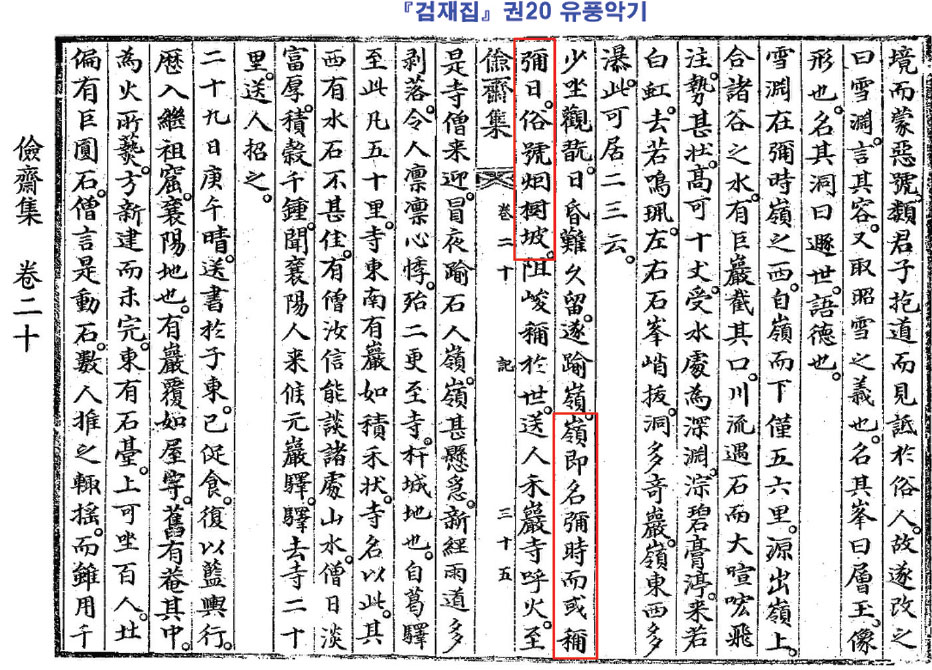 『검재집』권20 유풍악기
境而蒙惡號。類君子抱道而見詆於俗人。故遂改之
曰雪淵。言其容。又取昭雪之義也。名其峯曰層玉。像
形也。名其洞曰遯世。語德也。
雪淵在彌時嶺之西。自嶺而下僅五六里。源出嶺上。
合諸谷之水。有巨巖截其口。川流遇石而大喧吰飛
注。勢甚壯。高可十丈。受水處為深淵。淙碧膏渟。来若
白虹。去若鳴珮。左右石峯峭拔。洞多奇巖。嶺東西多
瀑。此可居二三云。
少坐觀翫。日昏難久留。遂踰嶺。嶺即名彌時而或稱
彌日。俗號烟樹坡。阻峻稱於世。送人禾巖寺呼火。至
儉齋集 卷二十 記 三十五
是寺僧来迎。冒夜踰石人嶺。嶺甚懸急。新經雨道多
剥落。令人凛凛心悸。殆二更至寺。杆城地也。自葛驛
至此凡五十里。寺東南有巖如積禾狀。寺名以此。其
西有水石不甚佳。有僧汝信能談諸處山水。僧曰淡
富厚。積穀千鍾。聞襄陽人来候元巖驛。驛去寺二十
里。送人招之。
二十九日庚午晴。送書於子東。已促食。復以藍輿行。
歷入繼祖窟。襄陽地也。有巖覆如屋宇。舊有菴其中。
為火所爇。方新建而未完。東有石臺。上可坐百人。北
偏有巨圓石。僧言是動石。數人推之輒搖。而雖用千
儉齋集 卷二十